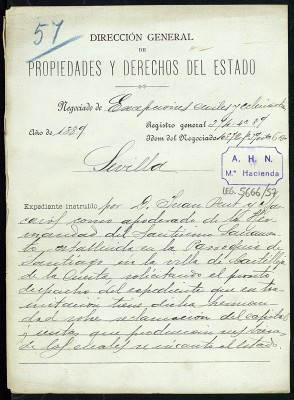 57
DIRECCIÓN GENERAL
DE
PROPIEDADES Y DERECHOS DEL ESTADO
Negociado de Excepciones civiles y
Año de 1889
Registro general
Idem del Negociado
Sevilla
A. H. N.
Mº Hacienda
LEG. 5666/57
Expediente instruido por D. Juan Rut y
como apoderado de la Her
mandad del Santisimo Sacramen
to establecida en la Parroquia de
Santiago en la villa de Castilleja
de la Cuesta, solicitando el pronto
despacho del expediente que en tra
mitación tiene dicha herman
dad sobre reclamacion del capital
y renta que producian sus bienes
de los cuales se incautó el Estado.